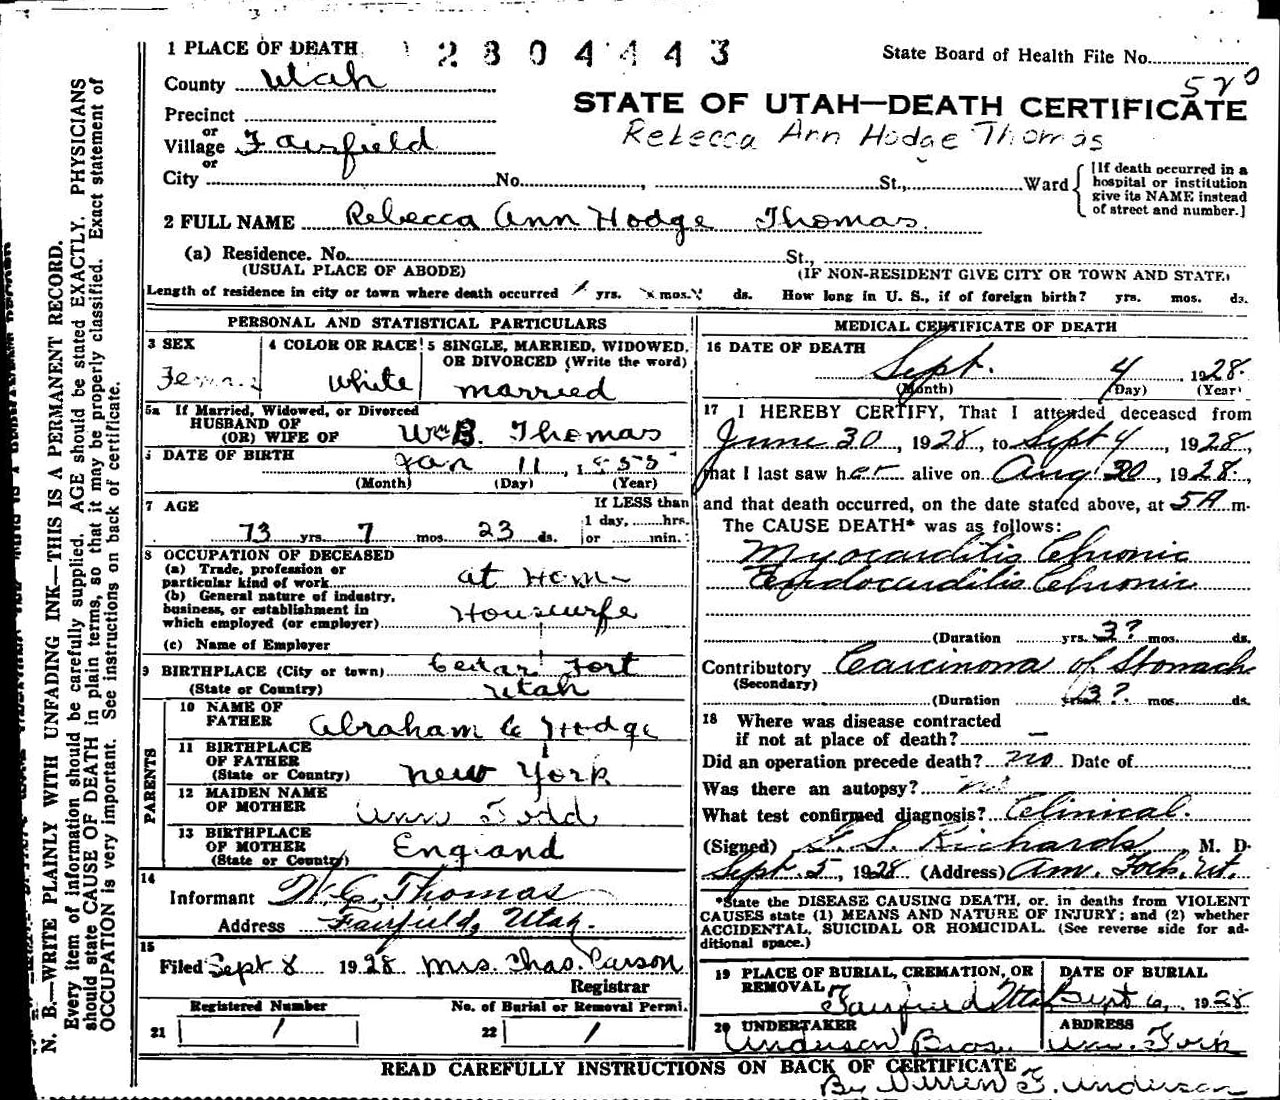 1 PLACE OF DEATH 2804443 State Board of Health File No.
County Utah 520
STATE OF UTAH—DEATH CERTIFICATE
Precinct
Rebecca Ann Hodge Thomas
or
Village Fairfield
or
City No. , St., Ward
[If death occurred in a
hospital or institution
give its NAME instead
of street and number.]
2 FULL NAME Rebecca Ann Hodge Thomas.
(a) Residence. No. St.,
(USUAL PLACE OF ABODE) (IF NON-RESIDENT GIVE CITY OR TOWN AND STATE)
Length of residence in city or town where death occurred yrs. mos. ds. How long in U. S., if of foreign birth? yrs. mos. ds.
PERSONAL AND STATISTICAL PARTICULARS
3 SEX 4 COLOR OR RACE 5 SINGLE, MARRIED, WIDOWED,
OR DIVORCED (Write the word)
white married
5a If Married, Widowed, or Divorced
HUSBAND OF
(OR) WIFE OF Wm B. Thomas
DATE OF BIRTH Jan 11, 1855
(Month) (Day) (Year)
7 AGE If LESS than
1 day, hrs.
73 yrs. 7 mos. 23 ds. or min.
8 OCCUPATION OF DECEASED
(a) Trade, profession or
particular kind of work at Hom
(b) General nature of industry,
business, or establishment in
which employed (or employer) Housewife
(c) Name of Employer
9 BIRTHPLACE (City or town) Cedar Fort
(State or Country) Utah
PARENTS
10 NAME OF
FATHER Abraham C Hodge
11 BIRTHPLACE
OF FATHER
(State or Country) New York
12 MAIDEN NAME
OF MOTHER Ann Todd
13 BIRTHPLACE
OF MOTHER
(State or Country) England
14
Informant W. C. Thomas
Address Fairfield, Utah.
15
Filed Sept 8 1928 Mrs. Chas. Carson
Registrar
Registered Number No. of Burial or Removal Permi.
21 / 22 /
MEDICAL CERTIFICATE OF DEATH
16 DATE OF DEATH
Sept. 4, 1928
(Month) (Day) (Year)
17 I HEREBY CERTIFY, That I attended deceased from
June 30, 1928, to Sept 4, 1928,
that I last saw her alive on Aug 30, 1928,
and that death occurred, on the date stated above, at 5A m.
The CAUSE DEATH* was as follows:
Myocarditis Chronic
Endocarditis Chronic
(Duration yrs. 3? mos. ds.
Contributory Carcinoma of Stomach
(Secondary)
(Duration 3? mos. ds.
18 Where was disease contracted
if not at place of death? —
Did an operation precede death? no Date of
Was there an autopsy? no
What test confirmed diagnosis? Clinical.
(Signed) Richards, M. D.
Sept 5, 1928 (Address) Am. Fork, Ut.
*State the DISEASE CAUSING DEATH, or, in deaths from VIOLENT
CAUSES state (1) MEANS AND NATURE OF INJURY; and (2) whether
ACCIDENTAL, SUICIDAL OR HOMICIDAL. (See reverse side for ad-
ditional space.)
19 PLACE OF BURIAL, CREMATION, OR DATE OF BURIAL
REMOVAL Fairfield Utah Sept 6, 1928
20 UNDERTAKER ADDRESS
Anderson Bros. Am. Fork
READ CAREFULLY INSTRUCTIONS ON BACK OF CERTIFICATE
By Warren F. Anderson
N. B.—WRITE PLAINLY WITH UNFADING INK—THIS IS A PERMANENT RECORD.
Every item of information should be carefully supplied. AGE should be stated EXACTLY. PHYSICIANS
should state CAUSE OF DEATH in plain terms, so that it may be properly classified. Exact statement of
OCCUPATION is very important. See instructions on back of certificate.